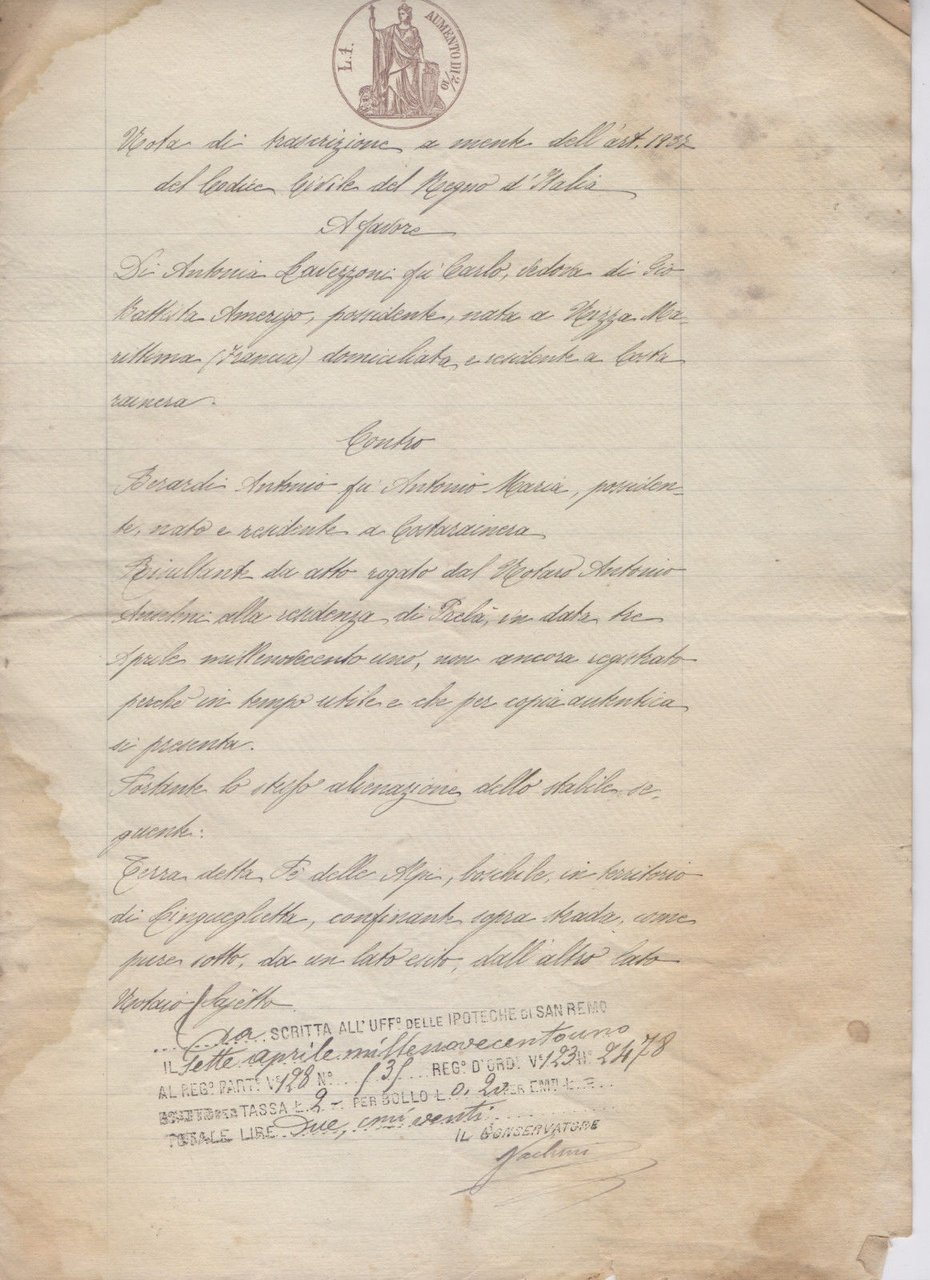 L. 1. AUMENTO DI 2/10
Nota di trascrizione a mente dell'art. 1937
del Codice Civile del Regno d'Italia
A favore
Di Antonia Cavezzoni fu Carlo, vedova di Gio
Battista Amerigo, possidente, nata a Nizza Ma-
rittima (Francia) domiciliata e residente a Costa
rainera.
Contro
Berardi Antonio fu Antonio Maria, possiden-
te, nato e residente a Costarainera
Risultante da atto rogato dal Notaro Antonio
Anselmi alla residenza di Prelà, in data tre
Aprile millenovecento uno, non ancora registrato
perchè in tempo utile e che per copia autentica
si presenta.
Portante lo stesso alienazione dello stabile se-
guente:
Terra detta Pè delle Alpi, boschile, in territorio
di Cingueglietta, confinante sopra strada, come
pure sotto, da un lato eito, dall'altro lato
Notaio Sajetto
Tra SCRITTA ALL'UFF° DELLE IPOTECHE DI SAN REMO
IL Sette aprile millenovecentouno
AL REG° PART° V° 128 N° REG° D'ORD° V° 123 N° 2478
PER TASSA L. 2 - PER BOLLO L. 0,20 PER EM.i L. -
TOTALE LIRE Due, cmi venti
IL CONSERVATORE